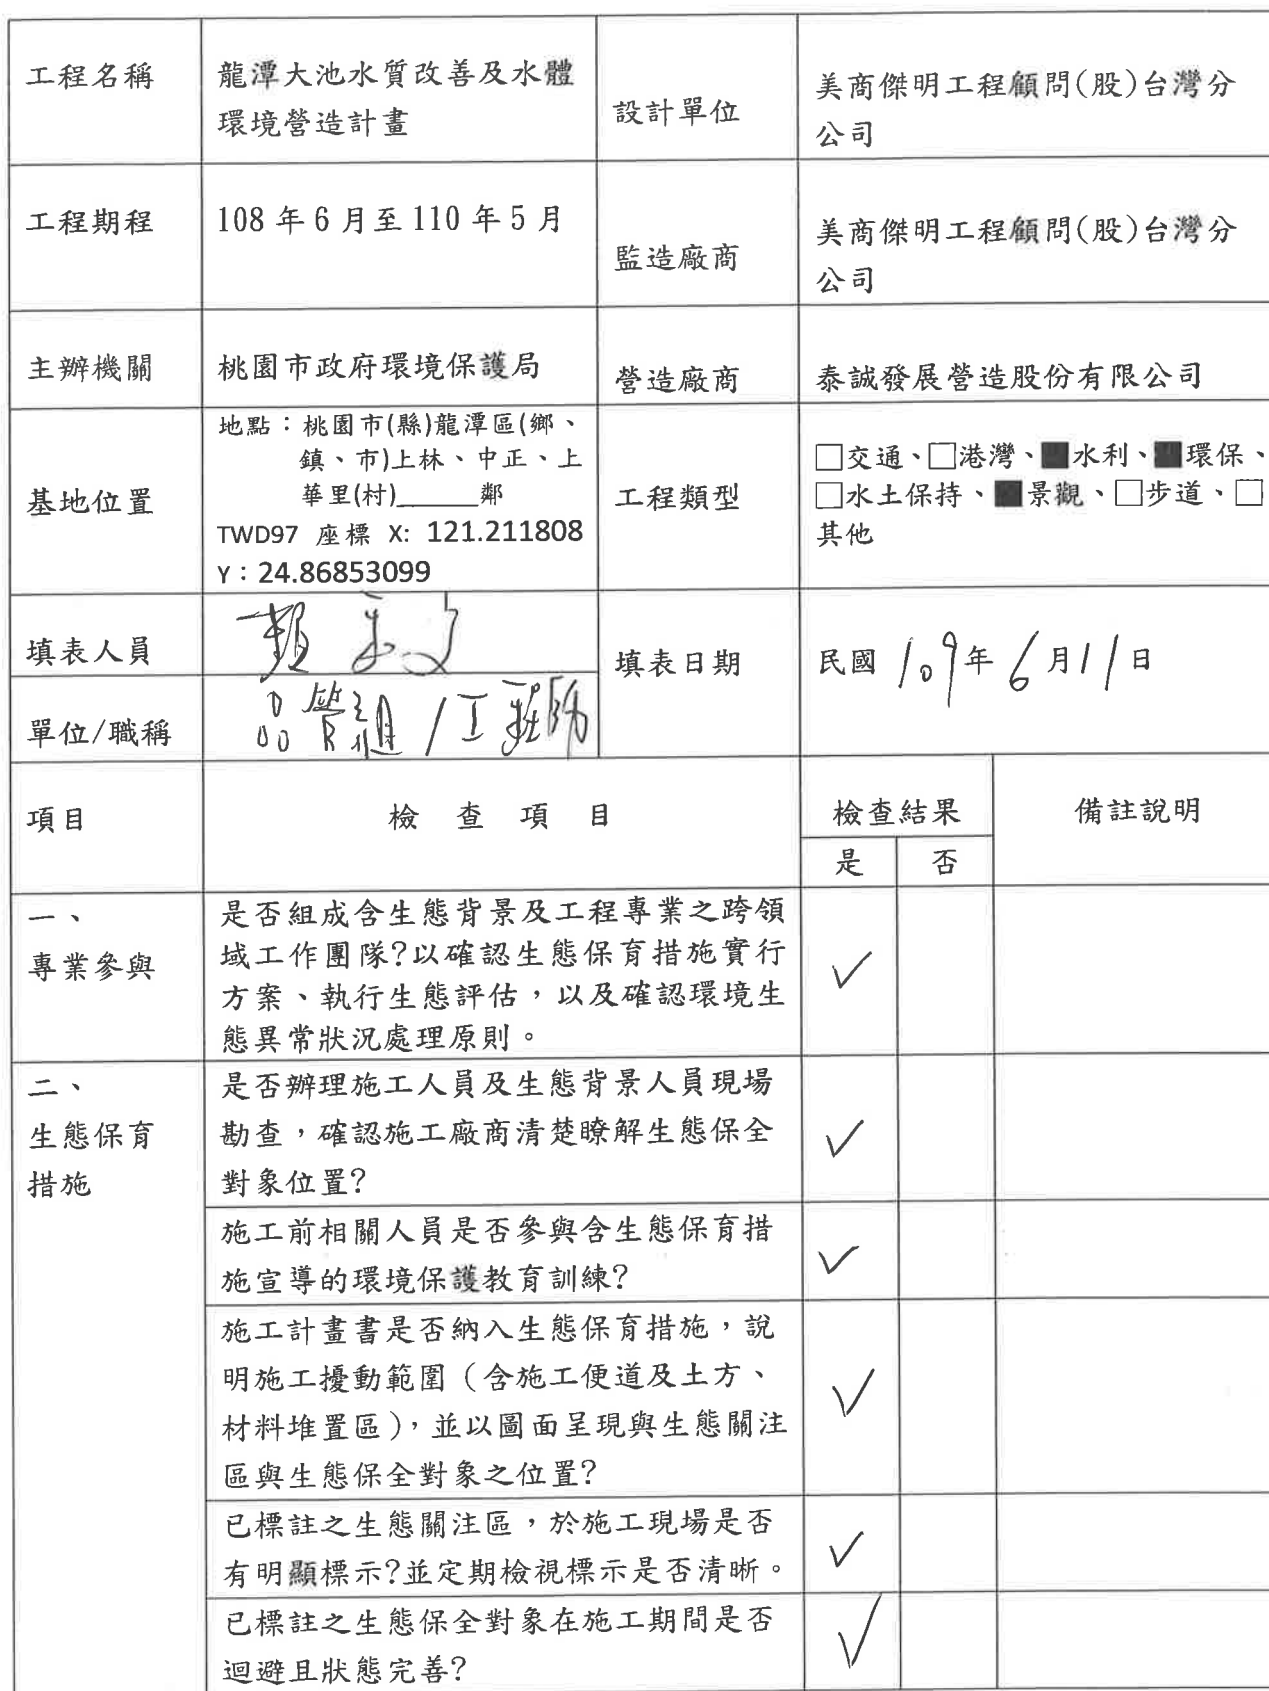 工程名稱
龍潭大池水質改善及水體
環境營造計畫
設計單位
美商傑明工程顧問(股)台灣分
公司
工程期程
108 年 6 月至 110 年 5 月
監造廠商
美商傑明工程顧問(股)台灣分
公司
主辦機關
桃園市政府環境保護局
營造廠商
泰誠發展營造股份有限公司
基地位置
地點：桃園市(縣)龍潭區(鄉、
鎮、市)上林、中正、上
華里(村)______鄰
TWD97 座標 X: 121.211808
Y：24.86853099
工程類型
□交通、□港灣、■水利、■環保、
□水土保持、■景觀、□步道、□
其他
填表人員
填表日期
民國 109 年 6 月 11 日
單位/職稱
品管組/工程師
項目
檢 查 項 目
檢查結果
備註說明
是
否
一、
專業參與
是否組成含生態背景及工程專業之跨領
域工作團隊?以確認生態保育措施實行
方案、執行生態評估，以及確認環境生
態異常狀況處理原則。
✓
二、
生態保育
措施
是否辦理施工人員及生態背景人員現場
勘查，確認施工廠商清楚瞭解生態保全
對象位置?
✓
施工前相關人員是否參與含生態保育措
施宣導的環境保護教育訓練?
✓
施工計畫書是否納入生態保育措施，說
明施工擾動範圍（含施工便道及土方、
材料堆置區），並以圖面呈現與生態關注
區與生態保全對象之位置?
✓
已標註之生態關注區，於施工現場是否
有明顯標示?並定期檢視標示是否清晰。
✓
已標註之生態保全對象在施工期間是否
迴避且狀態完善?
✓